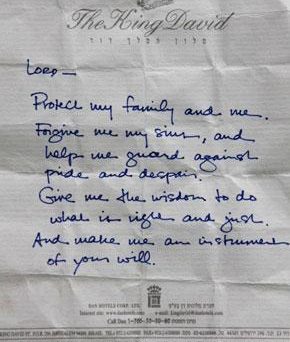 The King David
מלון המלך דוד
Lord —
Protect my family and me.
Forgive me my sins, and
help me guard against
pride and despair.
Give me the wisdom to do
what is right and just.
And make me an instrument
of your will.
DAN HOTELS CORP. LTD.